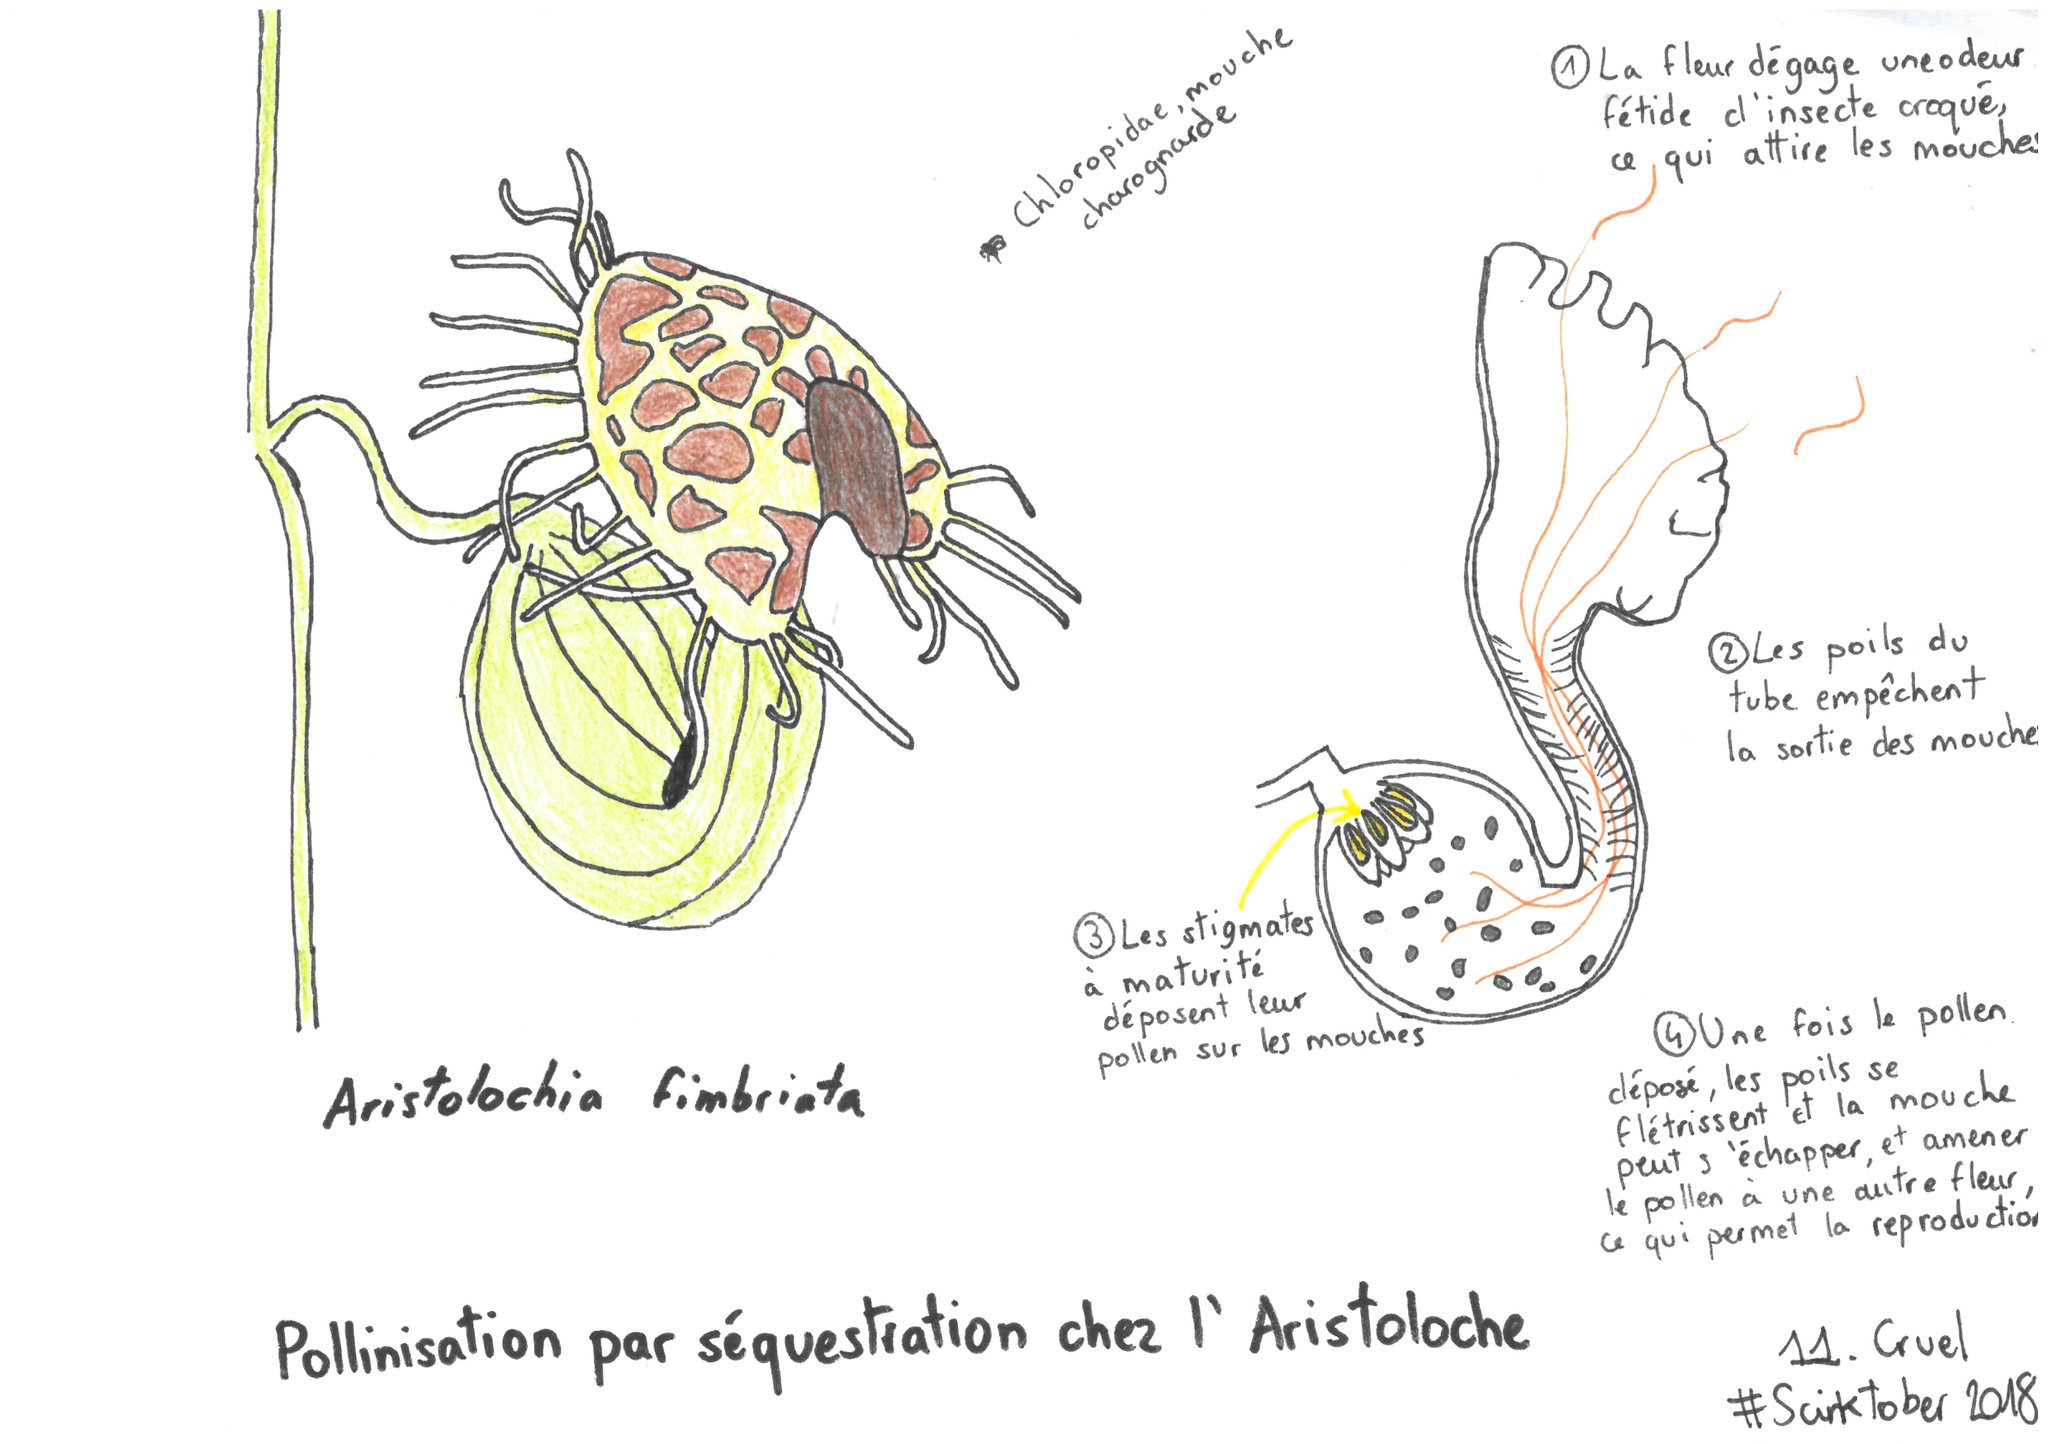 Chloropidae, mouche
charognarde
① La fleur dégage une odeur
fétide d'insecte croqué,
ce qui attire les mouches
② Les poils du
tube empêchent
la sortie des mouche
③ Les stigmates
à maturité
déposent leur
pollen sur les mouches
④ Une fois le pollen
déposé, les poils se
flétrissent et la mouche
peut s'échapper, et amener
le pollen à une autre fleur,
ce qui permet la reproduction
Aristolochia fimbriata
Pollinisation par séquestration chez l'Aristoloche
11. Cruel
#Scinktober 2018